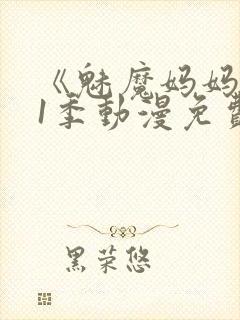 《魅魔妈妈
1季動漫免費
黑荣悠